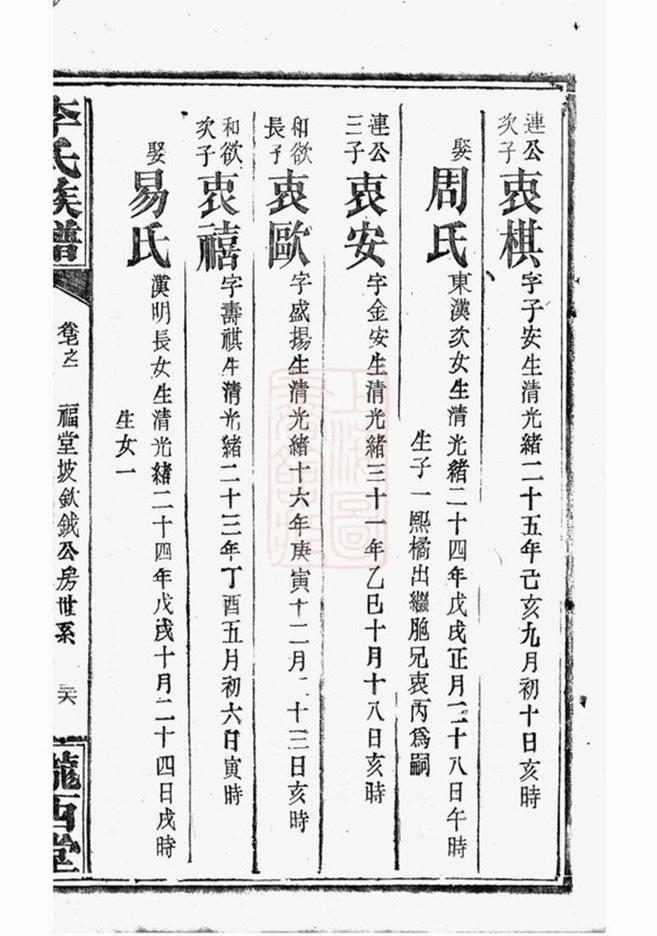 連公次子衷棋字子安生清光緒二十五年己亥九月初十日亥時
娶周氏東漢次女生清光緒二十四年戊戌正月二十八日午時
生子一熙橘出繼胞兄衷丙爲嗣
連公三子衷安字金安生清光緒三十一年乙巳十月十八日亥時
和欲長子衷歐字盛揚生清光緒十六年庚寅十二月二十三日亥時
和欲次子衷禧字壽祺生清光緒二十三年丁酉五月初六日寅時
娶易氏漢明長女生清光緒二十四年戊戌十月二十四日戌時
生女一
李氏族譜
之
福堂坡欽鉞公房世系
龍西堂